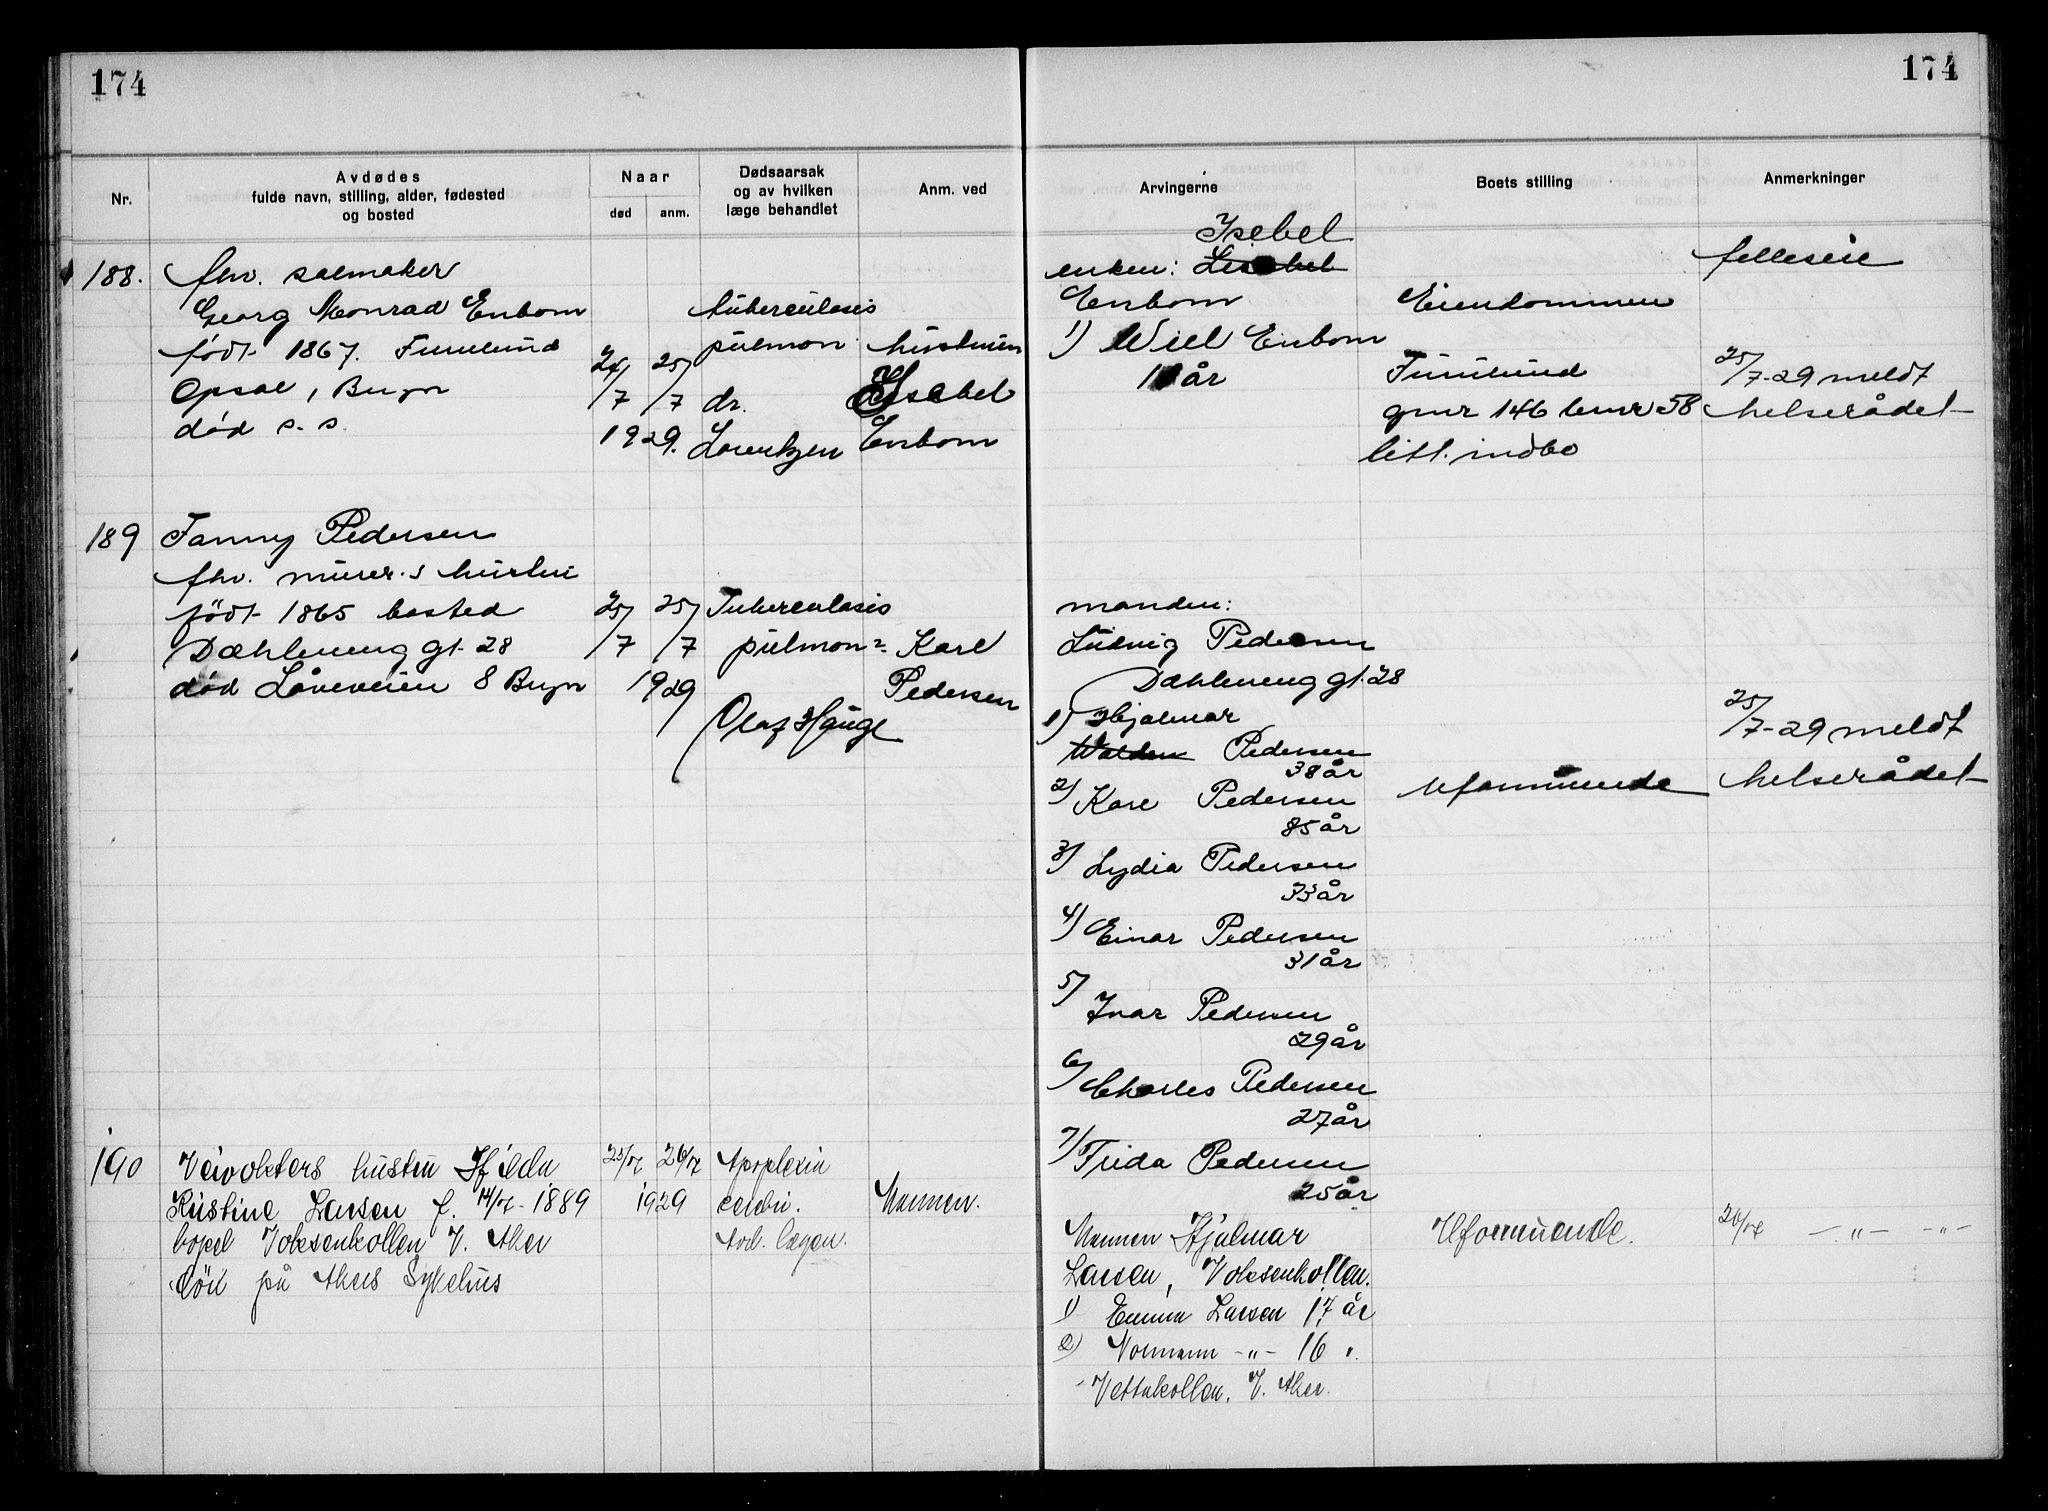 174
174
Nr.
Avdødes
fulde navn, stilling, alder, fødested
og bosted
Naar
død
anm.
Dødsaarsak
og av hvilken
læge behandlet
Anm. ved
Arvingerne
Boets stilling
Anmerkninger
188.
fhv. salmaker
Georg Monrad Enbom
født 1867. Furulund
Opsal, Bryn
død s. s.
24/7
25/7
1929.
tuberculosis
pulmon
dr.
Lorentzen
hustruen
Isebel
Enbom
Isebel
enken:
Enbom
1) Will Enbom
år
Eiendommen
Furulund
gnr 146 bnr 58
litt. indbo
felleseie
25/7-29 meldt
helserådet
189
Fanny Pedersen
fhv. murer.s hustru
født 1865 bosted
Dæhleneng gt. 28
død Låveveien 8 Bryn
25/7
25/7
1929
Tuberculosis
pulmon
Olaf Hauge
Karl
Pedersen
manden:
Ludvig Pedersen
Dæhleneng gt. 28
1) Hjalmar
Pedersen
38 år
2) Karl Pedersen
35 år
3) Lydia Pedersen
33 år
4) Einar Pedersen
31 år
5)
Ivar Pedersen
29 år
6) Charles Pedersen
27 år
7) Frida Pedersen
25 år
uformuende
25/7-29 meldt
helserådet
190
Veivokters hustru Hilda
Kristine Larsen f. 14/7-1889
bopel Voksenkollen V. Aker
död på Akers Sykehus
25/7
26/7
1929
Apoplexia
cerebri.
Avd. lægen.
Mannen.
Mannen Hjalmar
Larsen, Voksenkollen.
1) Emma Larsen 17 år
2) Normann -"- 16 "
Vettakollen. V. Aker.
Uformuende.
26/7 -"- -"-